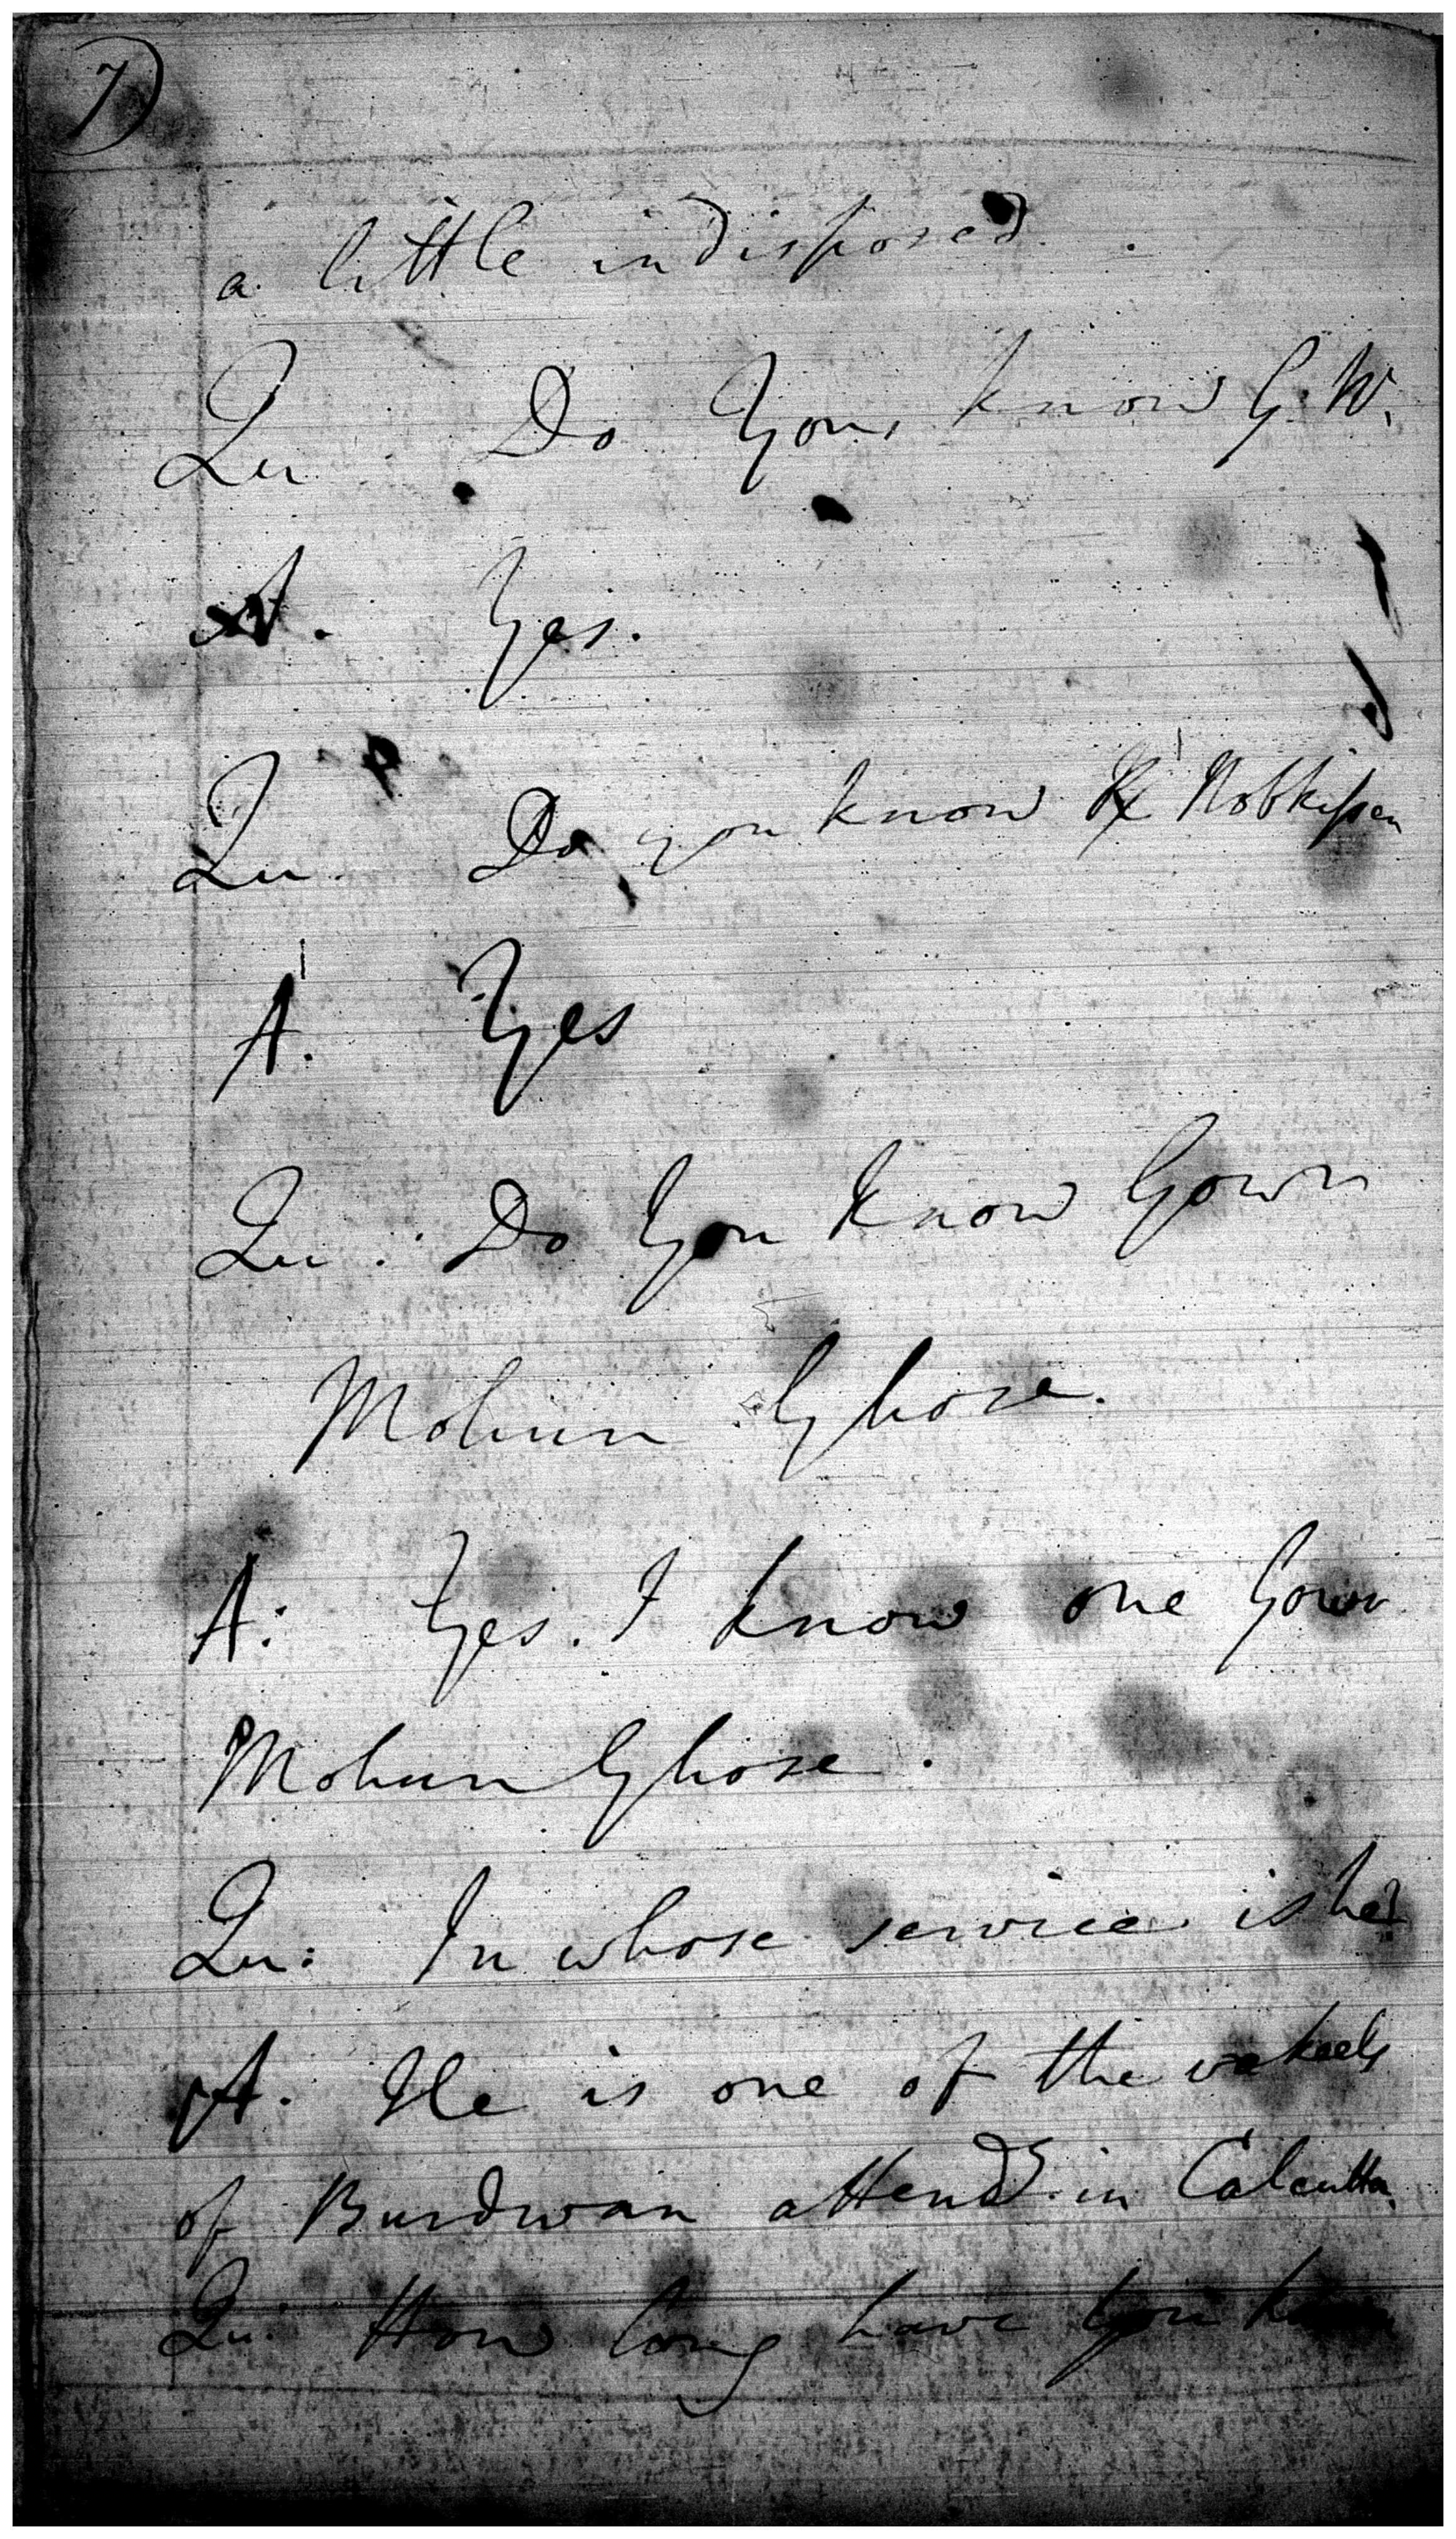 7)
a little indisposed.
Qu. Do You, know G. W.
A. Yes.
Qu. Do you know Nobkissen
A. Yes
Qu. Do You know Gowr
Mohun Ghose.
A: Yes. I know one Gowr
Mohun Ghose.
Qu: In whose service is he?
A. He is one of the vakeels
of Burdwan attends in Calcutta.
Qu: How long have you